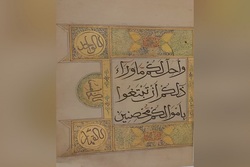 واحل لكم ماوراء
ذلكم أن تبتغوا
بأموالكم محصنين